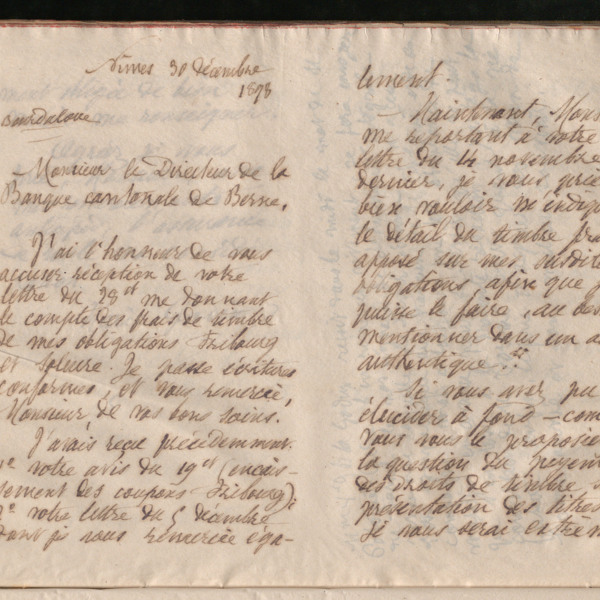 Nîmes 30 décembre
1898
Bourdaloue
Monsieur le Directeur de la
Banque cantonale de Berne.
J'ai l'honneur de vous
accuser réception de votre
lettre du 28 ct me donnant
le compte des frais de timbre
de mes obligations Fribourg
et Soleure. Je passe écritures
conformes, et vous remercie,
Monsieur, de vos bons soins.
J'avais reçu précédemment
1º votre avis du 19 ct (encais-
sement des coupons Fribourg);
2º votre lettre du 5 décembre
dont je vous remercie éga-
lement.
Maintenant, Mons
me reportant à votre
lettre du 14 novembre
dernier, je vous prie
bien vouloir m'indiqu
le détail du timbre fra
apposé sur mes susdite
obligations, afin que j
puisse le faire, au bes
mentionner dans un a
authentique.
Si vous avez pu
élucider à fond – com
vous vous le proposie
la question du
des droits de timbre
présentation des titres
je vous serai extrêm